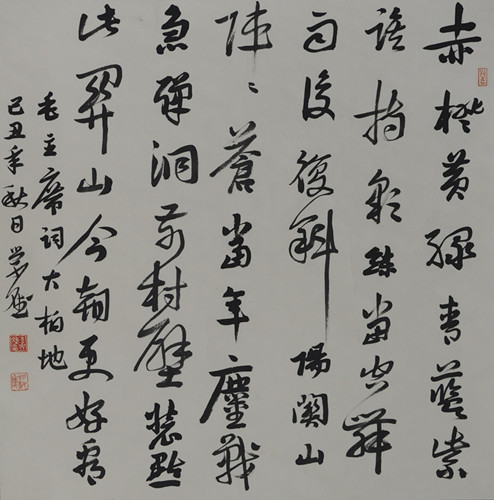 赤橙黄綠青藍紫
誰持彩練当空舞
雨後復斜陽關山
陣々蒼当年鏖戰
急彈洞前村壁裝點
此關山今朝更好看
毛主席詞大柏地
己丑年秋日